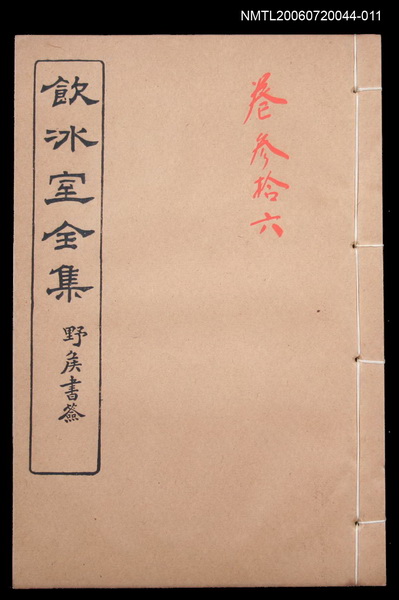 NMTL20060720044-011
卷參拾六
飲冰室全集
野矦書簽